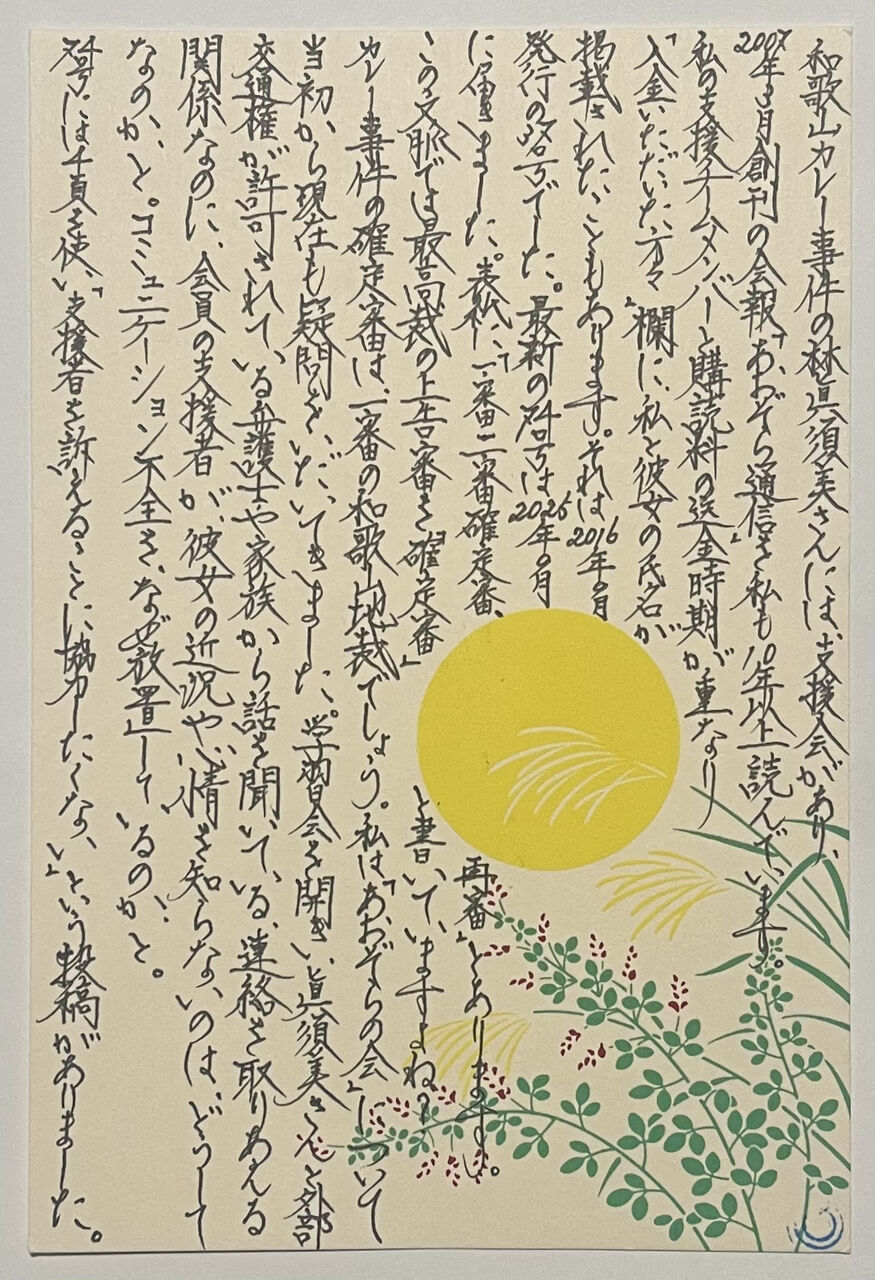 和歌山カレー事件の林眞須美さんには、支援会があり、
2007年3月創刊の会報「あおぞら通信」を私も10年以上読んでいます。
私の支援チームメンバーと購読料の送金時期が重なり
「入金いただいた方々」欄に、私と彼女の氏名が
掲載されたこともあります。それは2016年9月
発行の22号でした。最新の号は2025年9月
に届きました。表紙に、「一審二審確定審、再審」とあります。
この文脈では最高裁の上告審を『確定審』と書いていますよね?
カレー事件の確定審は、一審の和歌山地裁でしょう。私は「あおぞらの会」について
当初から現在も疑問を、いだいてきました。学習会を開き、眞須美さんと外部
交通権が許可されている弁護士や家族から話を聞いている、連絡を取りあえる
関係なのに、会員の支援者が、彼女の近況や心情を知らないのは、どうして
なのか、と。コミュニケーション不全を、なぜ放置しているのか、と。
号には千頁を使い、「支援者を訴えることに協力したくない」という投稿がありました。